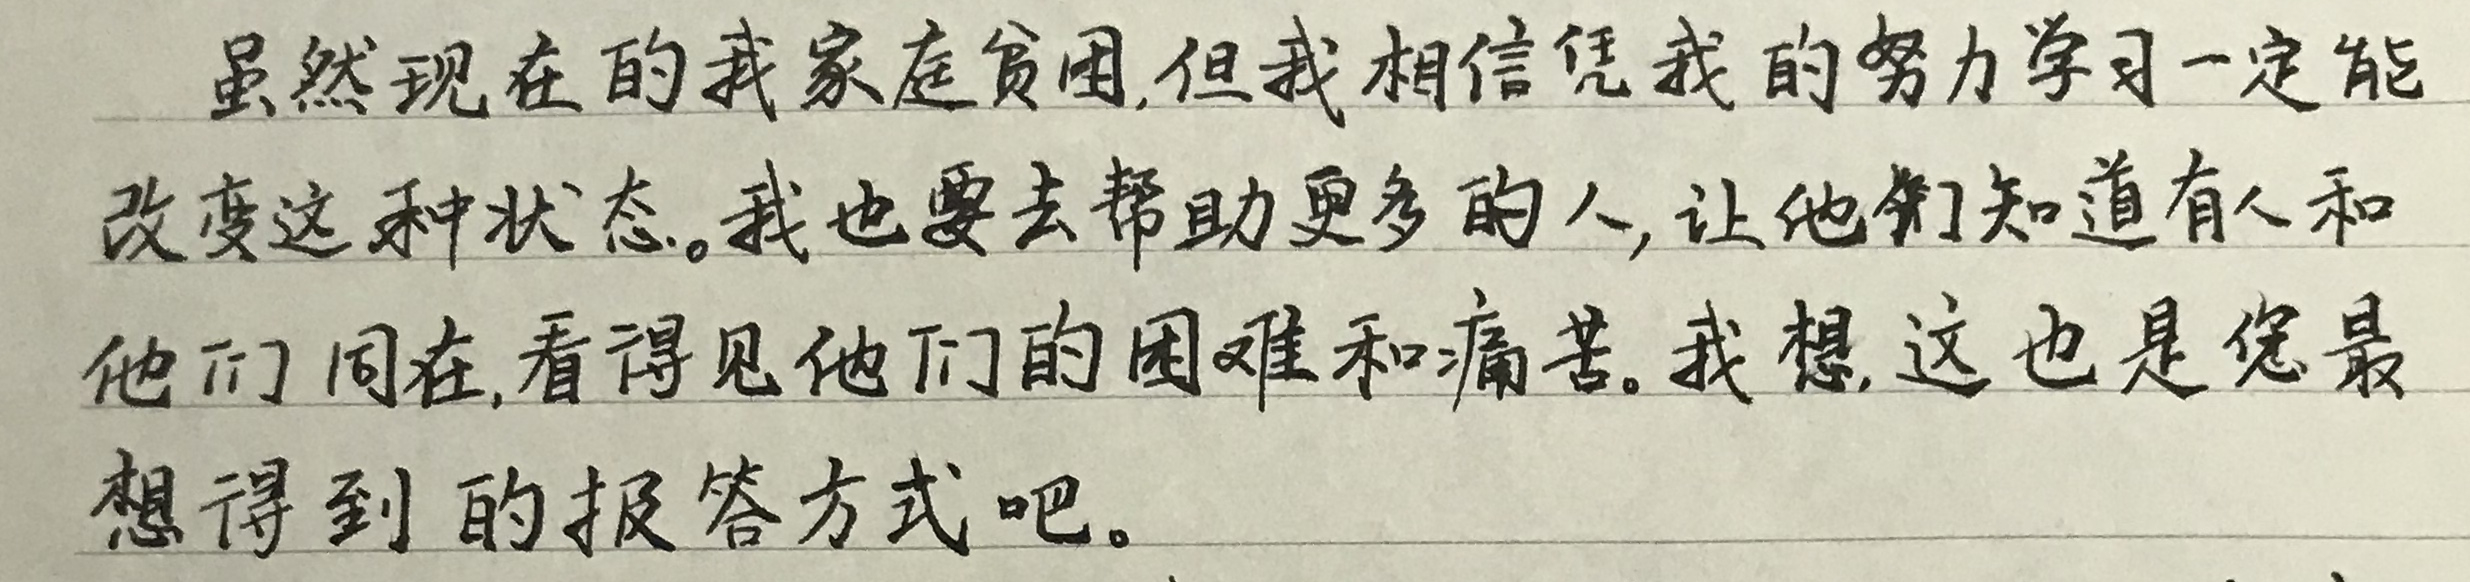 虽然现在的我家庭贫困,但我相信凭我的努力学习一定能
改变这种状态。我也要去帮助更多的人,让他们知道有人和
他们同在,看得见他们的困难和痛苦。我想,这也是您最
想得到的报答方式吧。